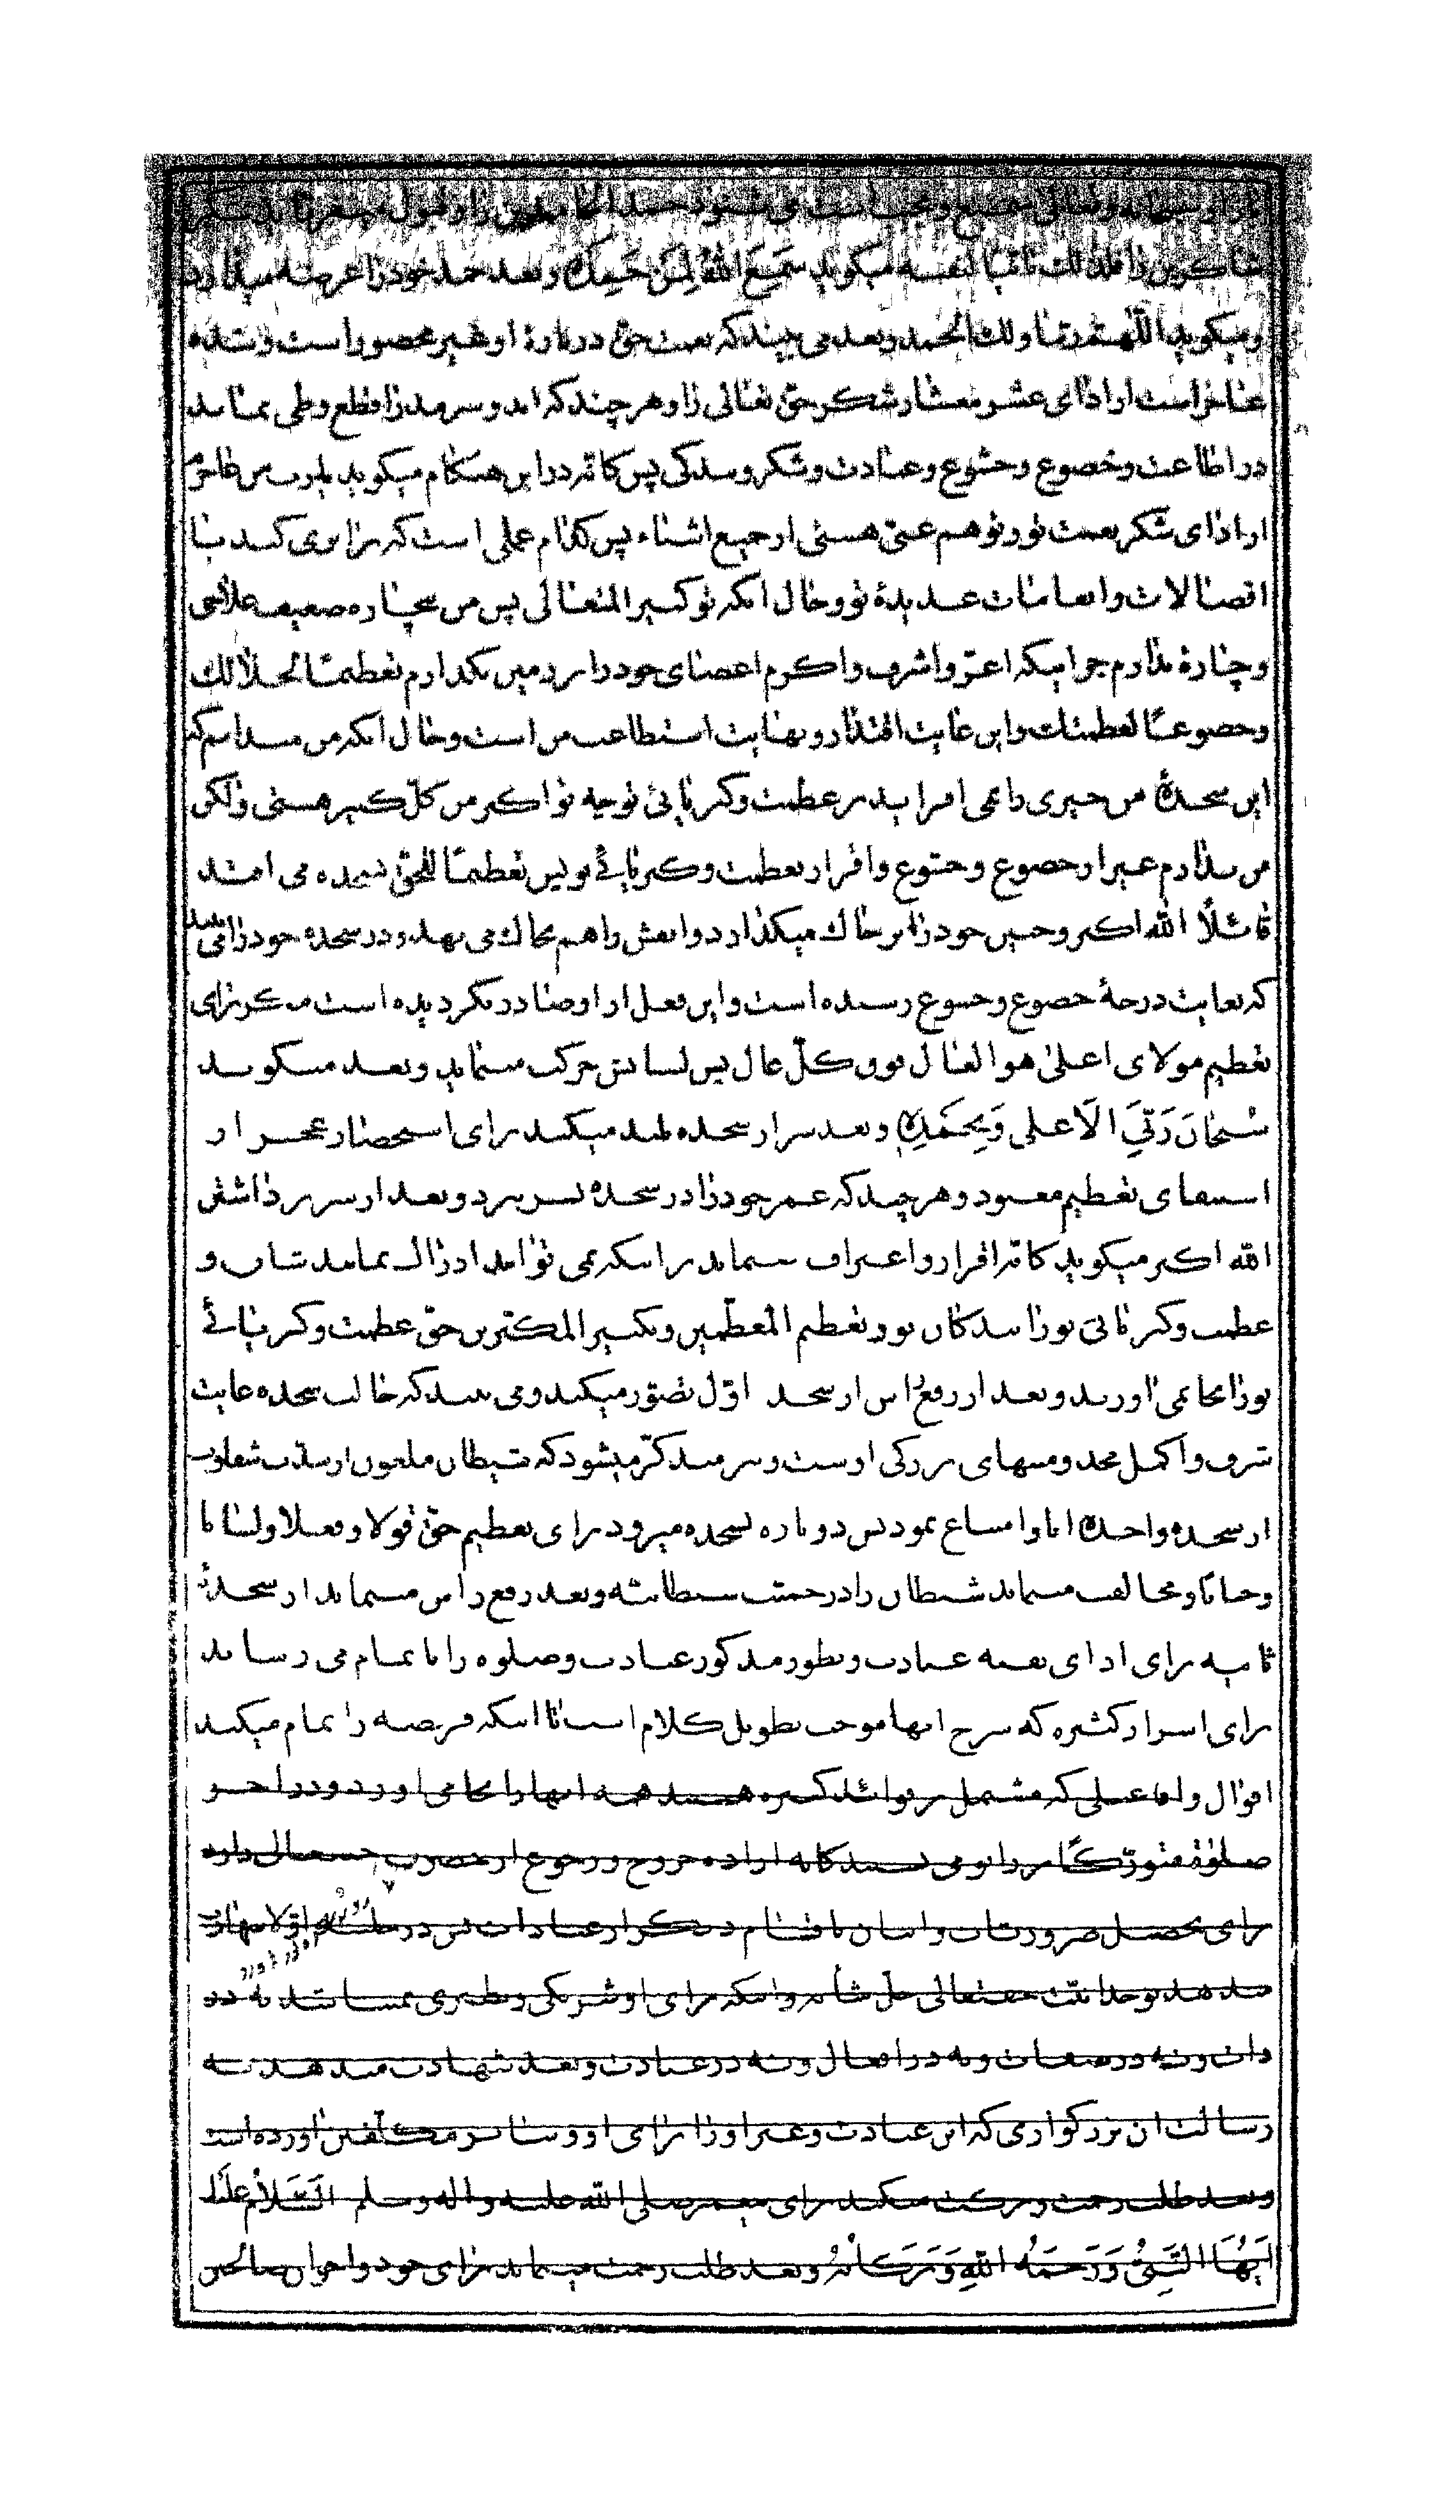 شاکرین را فلذلك نائبا لنفسه میکوید سَمِعَ اللهُ لِمَنْ حَمِدَه و بعد حمد خود را عرضه میدارد
و میکوید اللّهم ربّنا ولك الحمد و بعد می بیند که نعمت حقّ در بارهٔ او غیر محصور است و بنده
عاجز است از ادای عشر معشار شکر حقّ تعالی را و هر چند که ابد و سرمد را قطع و طی نماید
در اطاعت و خضوع و خشوع و عبادت و شکر و بندکی پس کانّه در این هنکام میکوید یا رب من عاجزم
از ادای شکر نعمت تو و تو هم غنیّ هستی از جمیع اشیاء پس کدام عملی است که برابری کند با
افضالات و انعامات عدیدهٔ تو و حال انکه تو کبیر المتعالی پس من بیچاره ضعیف علاجی
و چارهٔ ندارم جز اینکه اعزّ و اشرف و اکرم اعضای خود را بر زمین بکذارم تعظیمًا لجلالك
و خضوعًا لعظمتك و این غایت اقتدار و نهایت استطاعت من است و حال انکه من میدانم که
این سجدهٔ من چیزی را نمی افزاید بر عظمت و کبریائی تو چه تو اکبر من کلّ کبیر هستی ولکن
من ندارم غیر از خضوع و خشوع و اقرار بعظمت و کبریائی تو پس تعظیمًا للحقّ بسجده می افتد
قائلًا الله اکبر و جبین خود را بر خاك میکذارد و انفش را هم بخاك می نهد و در سجده خود را می بیند
که بغایت درجهٔ خضوع و خشوع رسیده است و این فعل از او صادر نکردیده است مکر برای
تعظیم مولای اعلی هو العال فوق کلّ عال پس لسانش حرکت مینماید و بعد میکوید
سُبْحانَ رَبّیَ الَاعلی وَبِحَمْدِه و بعد سر از سجده بلند میکند برای استحضار عجز از
استیفای تعظیم معبود و هر چند که عمر خود را در سجده بسر برد و بعد از سر برداشتن
الله اکبر میکوید کانّه اقرار و اعتراف مینماید بر اینکه نمی تواند ادراك نماید شان و
عظمت و کبریائی تو را بندکان تو و تعظیم المعظّمین و تکبیر المکبّرین حقّ عظمت و کبریائی
تو را بجا نمی اورند و بعد از رفع راس از سجد اوّل تصوّر میکند و می بیند که حالت سجده غایت
شرف و اکمل مجد و منتهای بزرکی اوست و سرمد متذکّر میشود که شیطان ملعون از شدّت شقاوت
از سجدهٔ واحده ابا و امتناع نمود پس دوباره بسجده میرود برای تعظیم حقّ قولا و فعلا و لسانا
و جنانا و مخالفت مینماید شیطان را در خبیثت شیطانیّه و بعد رفع راس مینماید از سجدهٔ
ثانیه برای ادای بقیه عبادت و بطور مذکور عبادت و صلوه را باتمام می رساند
برای اسرار کثیره که شرح انها موجب تطویل کلام است تا اینکه فریضه را تمام میکند
اقوال و افاعیلی که مشتمل بر فوائد کثیره هستند همه انها را بجا می اورد و در اخر
برای تحصیل ضروریات و اتیان باقسام دیکر از عبادات پس در
میدهد بوحدانیّت حقتعالی جلّ شأنه و اینکه برای او شریکی و نظیری نمیباشد نه در
ذات و نه در صفات و نه در افعال و نه در عبادت و بعد شهادت میدهد به
رسالت ان بزرکواری که این عبادت و غیر او را برای او و سایر مکلّفین اورده است
و بعد طلب رحمت و برکت میکند برای پیغمبر صلی الله علیه و اله و سلم السَّلامُ عَلَیْكَ
اَیُّهَا النَّبیُّ وَرَحمَةُ اللهِ وَبَرَکاتُهُ و بعد طلب رحمت مینماید برای خود و اخوان صالحین